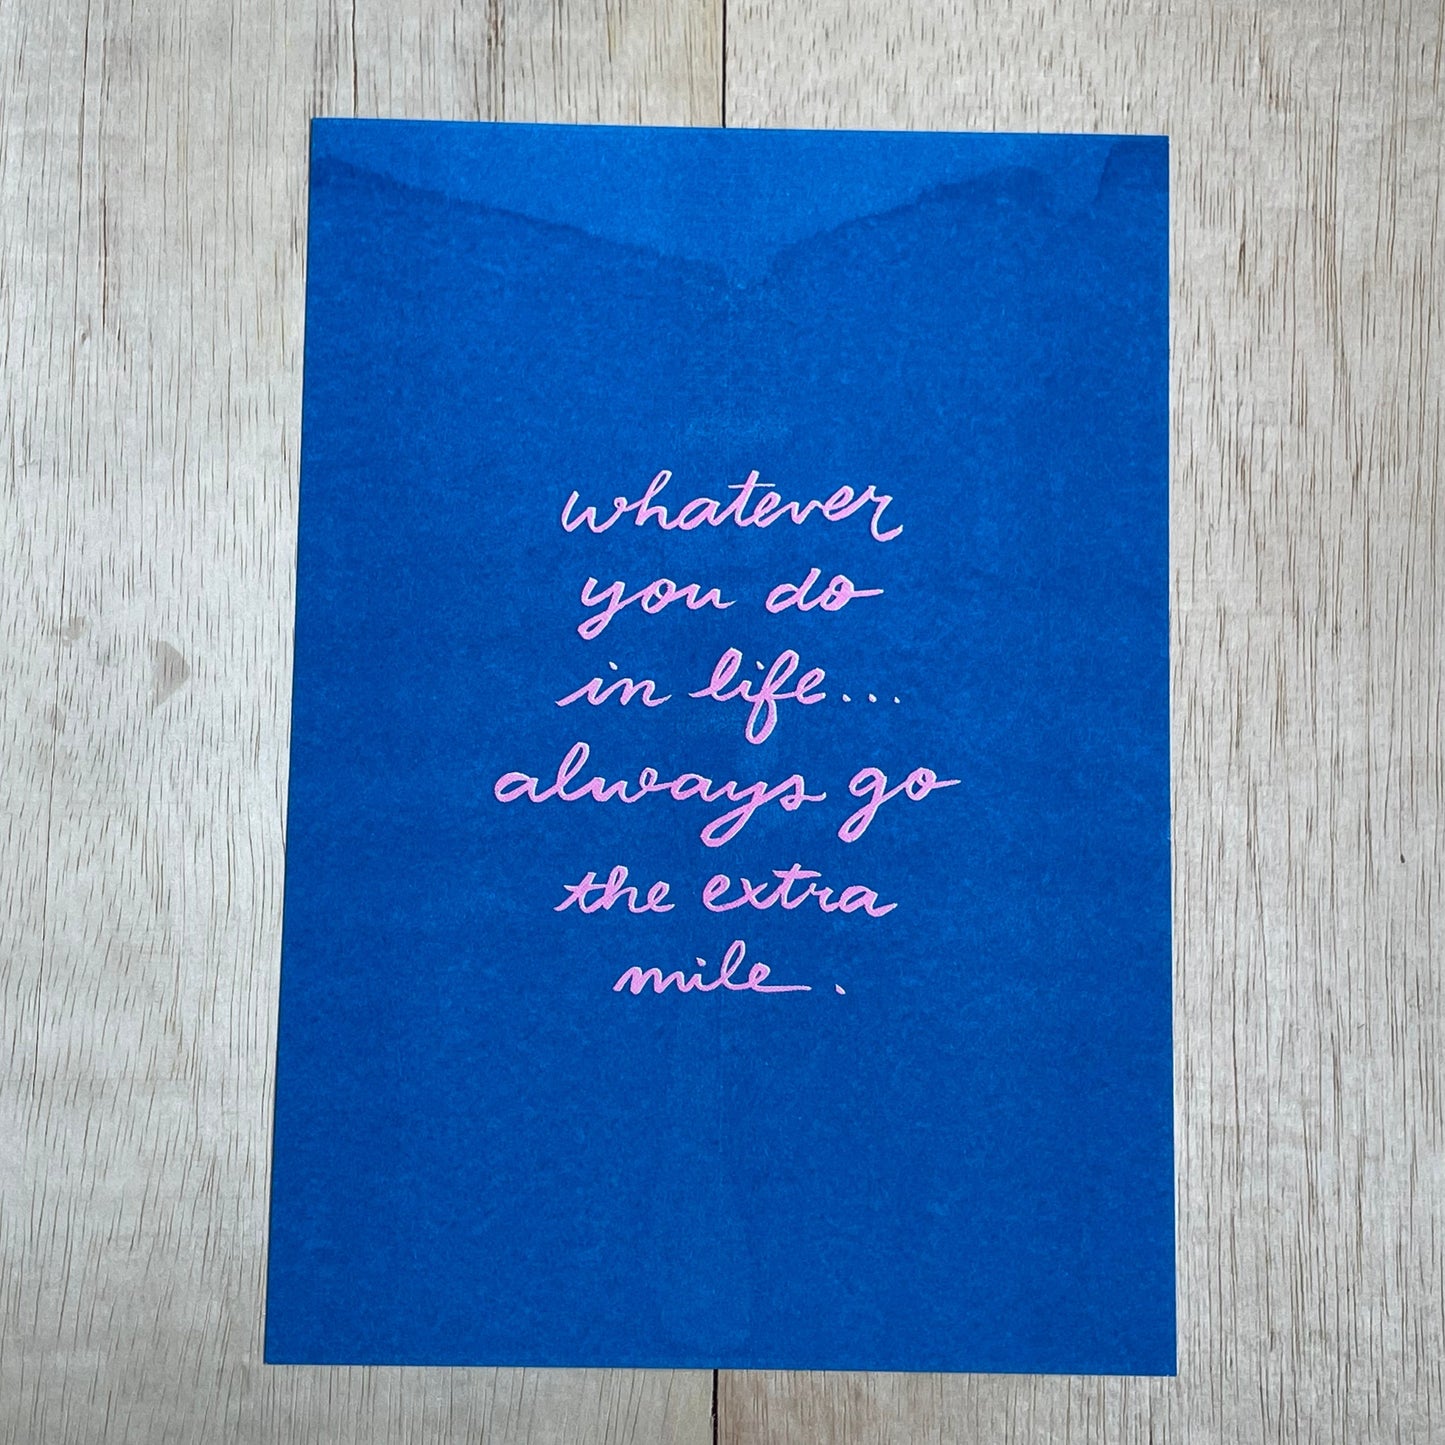 whatever
you do
in life...
always go
the extra
mile.